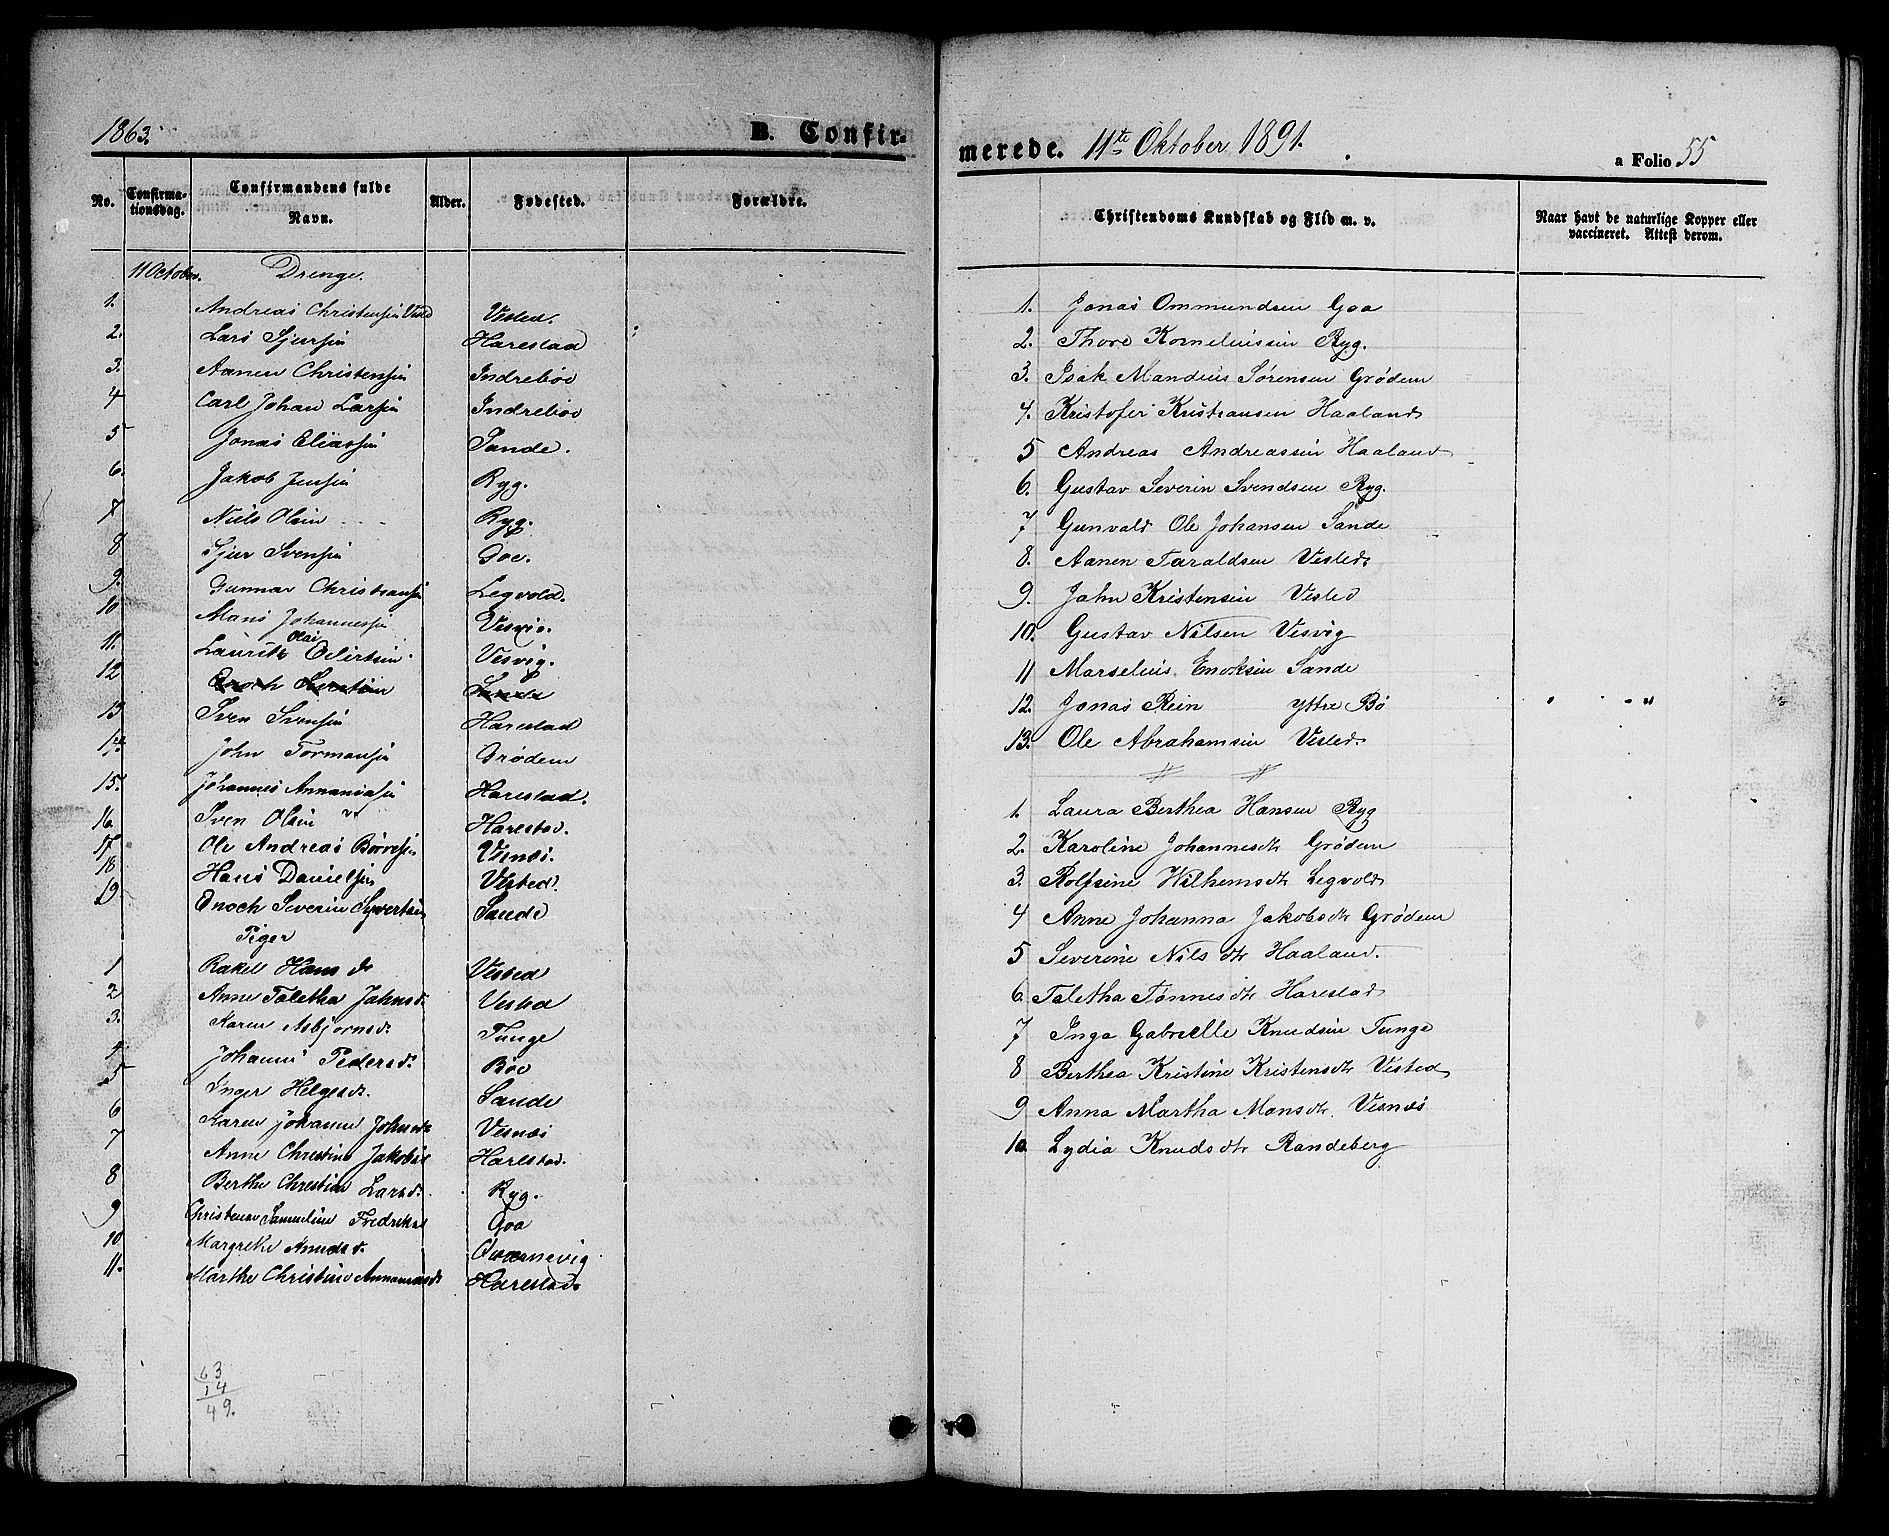 1863.
B. Confir-
No.
Confirma-
tionsdag.
Confirmandens fulde
Navn.
Alder.
Fødested.
Forældre.
11 Octobr. Drenge.
1. Andreas Christensen Visted Visted.
2. Lars Sjursen Harestad
3. Aanen Christensen Indrebøe
4 Carl Johan Larsen Indrebøe
5 Jonas Eliassen Sande.
6. Jakob Jensen Ryg.
7 Niels Olsen Ryg.
8 Sjur Svensen Goe.
9. Gunnar Christiansen Legvold.
10 Mons Johannesen Vesvig.
11. Lauritz Olai Eilertsen Vesvig.
12 Enoch Sande
13 Sven Svensen Harestad
14. John Tormensen Grødem
15. Johannes Annaniasen Harestad.
16. Sven Olsen Harestad.
17. Ole Andreas Børresen Visnæs.
18 Hans Danielsen Visted.
19 Enoch Severin Syvertsen Sande
Piger
1 Rakel Hansdr Visted
2 Anne Taletha Johnsd. Visted
3. Karen Asbjørnsd. Tunge
4. Johanne Pedersd. Bøe
5 Inger Helgesd. Sande
6 Karen Johanne Johnsdr Visnæs
7 Anne Christine Jakobsd Harestad.
8 Berthe Christine Larsd. Ryg.
9 Christense Samueline Fredriksd Goa
10 Margrethe Knudsd. Qværnevig
11. Marthe Christine Annaniasd. Harestad.
63
14
49.
merede. 11te Oktober 1891.
a Folio 55
Christendoms Kundskab og Flid m. v.
Naar havt de naturlige Kopper eller
vaccineret. Attest derom.
1. Jonas Ommundsen Goa
2. Thore Korneliussen Ryg.
3. Isak Mandius Sørensen Grødem
4. Kristofer Kristiansen Haaland
5 Andreas Andreassen Haaland
6. Gustav Severin Svendsen Ryg.
7 Gunvald Ole Johansen Sande
8. Aanen Taraldsen Visted.
9. John Kristensen Visted
10. Gustav Nilsen Vesvig
11 Marselius Enoksen Sande
12. Jonas Rein Yttre Bø
13. Ole Abrahamsen Visted.
1. Laura Berthea Hansen Ryg
2. Karoline Johannesdtr Grødem
3. Rolfsine Wilhemsdtr Legvold
4 Anne Johanna Jakobsdtr Grødem
5 Severine Nilsdtr Haaland.
6. Taletha Tønnesdtr Harestad
7 Inga Gabrielle Knudsen Tunge
8 Berthea Kristine Kristensdtr Visted
9 Anna Martha Monsdtr. Visnæs
10 Lydia Knudsdtr Randeberg